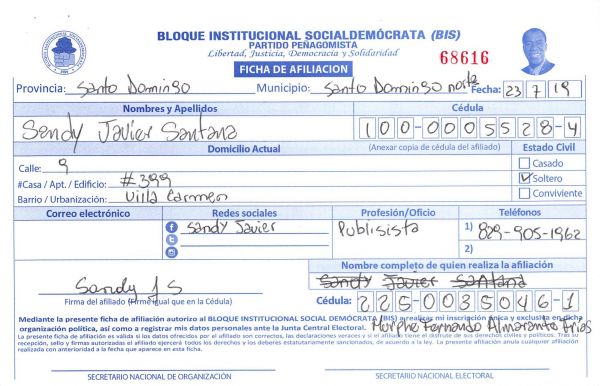 BLOQUE INSTITUCIONAL SOCIALDEMÓCRATA (BIS)
PARTIDO PEÑAGOMISTA
Libertad, Justicia, Democracia y Solidaridad
68616
FICHA DE AFILIACION
Provincia: Santo Domingo Municipio: Santo Domingo norte Fecha: 23 7 19
Nombres y Apellidos Cédula
Sendy Javier Santana 100-0005528-4
Domicilio Actual (Anexar copia de cédula del afiliado) Estado Civil
Calle: 9 Casado
#Casa / Apt. / Edificio: #399 Soltero
Barrio / Urbanización: Villa Carmen Conviviente
Correo electrónico Redes sociales Profesión/Oficio Teléfonos
Sandy Javier Publisista 1) 829-905-1962
2)
Nombre completo de quien realiza la afiliación
Sandy J S Sandy Javier Santana
Firma del afiliado (Firma igual que en la Cédula) Cédula: 225-0035046-1
Mediante la presente ficha de afiliación autorizo al BLOQUE INSTITUCIONAL SOCIAL DEMÓCRATA (BIS) a realizar mi inscripción única y exclusiva en dicha
organización política, así como a registrar mis datos personales ante la Junta Central Electoral. Fernando Almarante Frias
La presente ficha de afiliación es válida si los datos ofrecidos por el afiliado son correctos, las declaraciones veraces y si el afiliado tiene el disfrute de sus derechos civiles y políticos. Tras su
recepción, sello y firmas autorizadas el afiliado ejercerá todos los derechos y los deberes estatutariamente sancionados, de acuerdo a la ley. La presente afiliación anula cualquier afiliación
realizada con anterioridad a la fecha que aparece en esta ficha.
SECRETARIO NACIONAL DE ORGANIZACIÓN SECRETARIO NACIONAL ELECTORAL